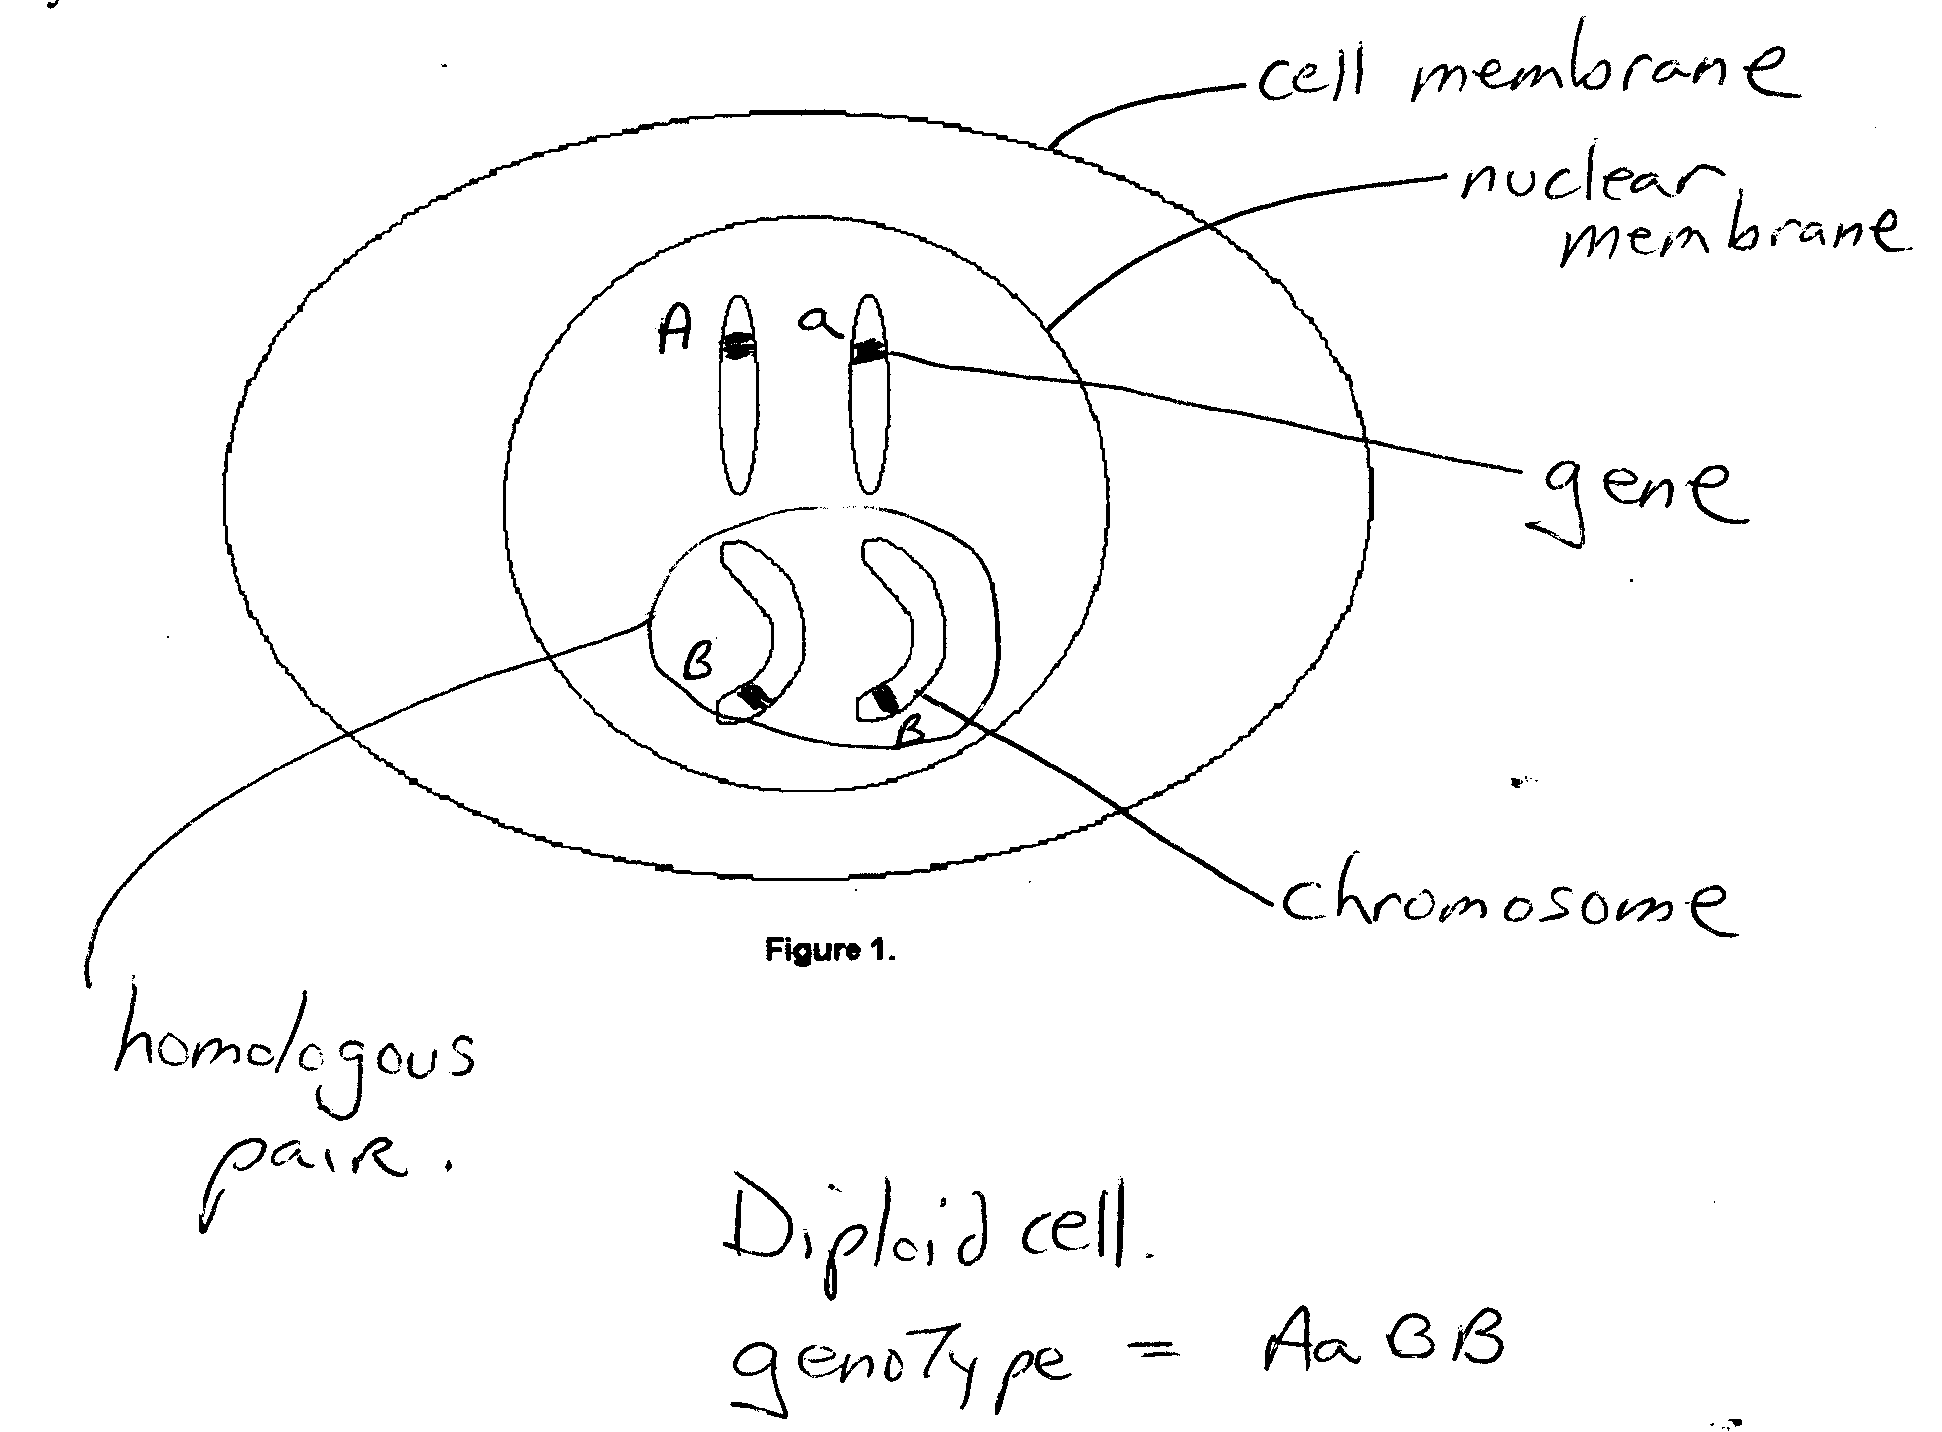 cell membrane
nuclear
membrane
A
a
gene
B
B
chromosome
Figure 1.
homologous
pair.
Diploid cell.
genotype = AaBB